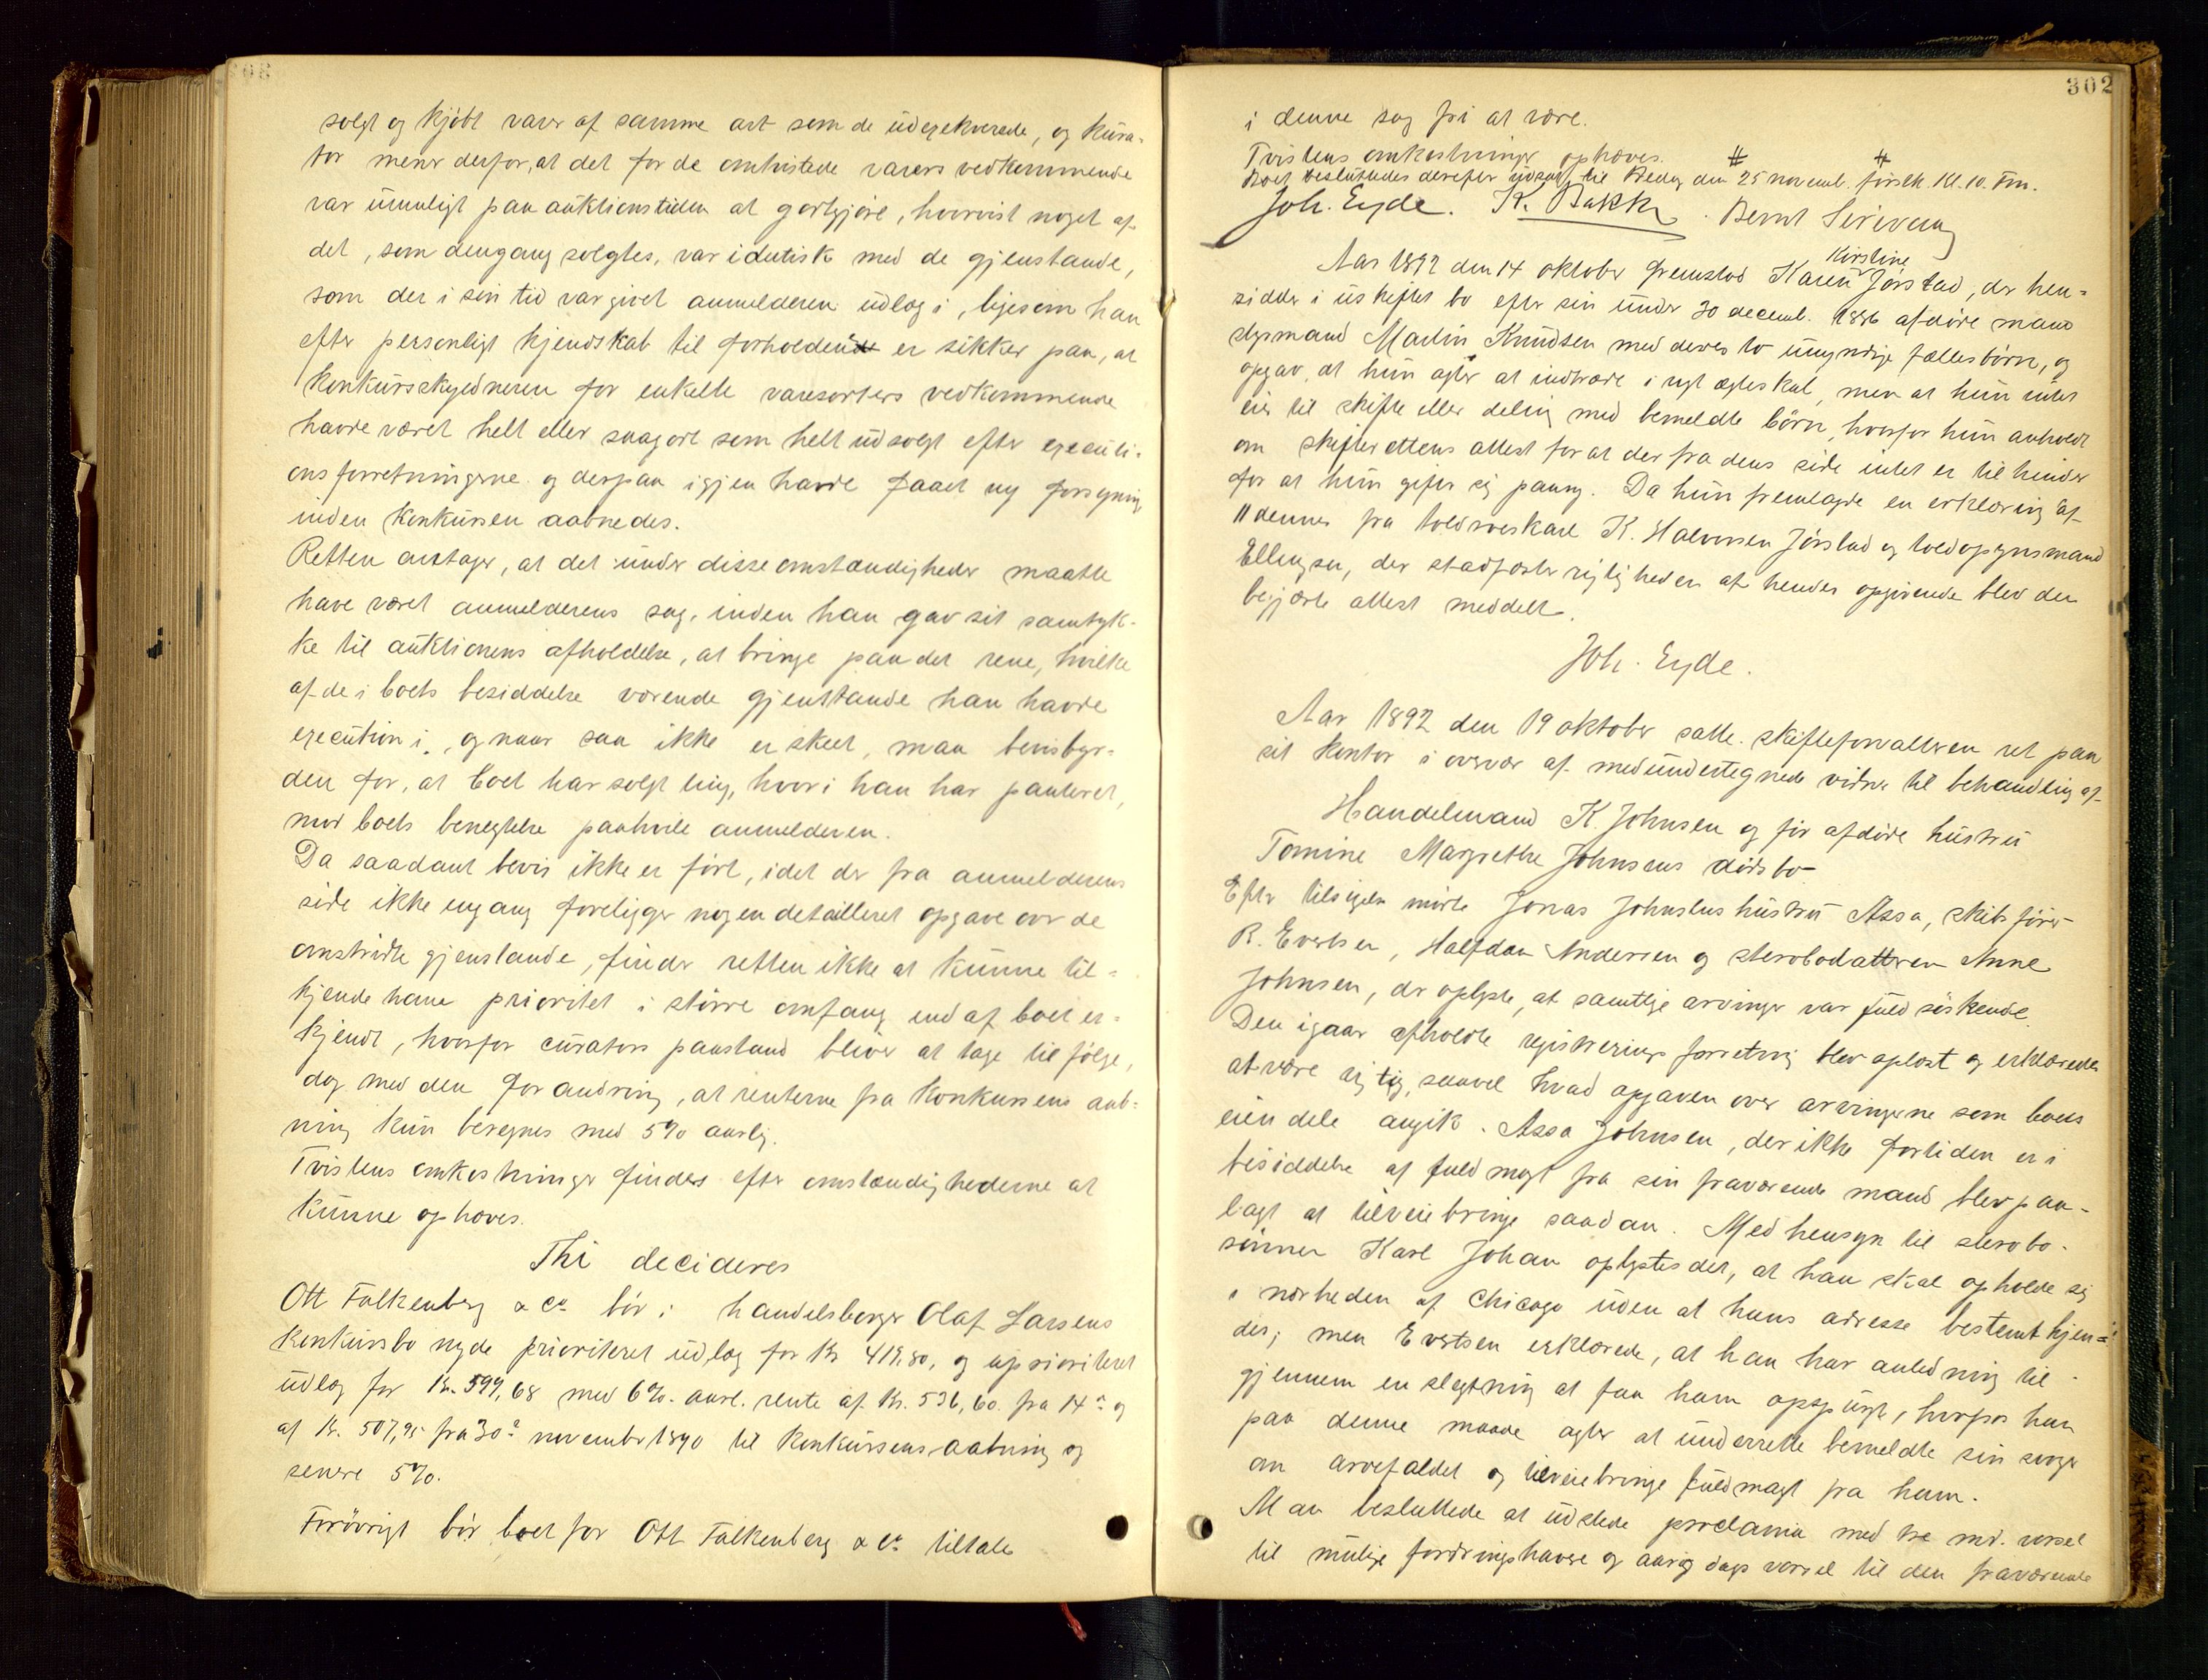 solgt og kjöbt varer af samme art som de udexekverede, og kura-
tor mener derfor, at det for de omtvistede varers vedkommende
var umuligt paa auktionstiden at godtgjöre, hvorvidt noget af
det, som dengang solgtes, var identisk med de gjenstande,
som der i sin tid var givet anmelderen udlæg i, ligesom han
efter personligt kjendskab til forholdene er sikker paa, at
konkursskyldneren for enkelte varesorters vedkommende
havde været helt eller saagodt som helt udsolgt efter executi-
onsforretningerne og derpaa igjen havde faaet ny forsyning
inden konkursen aabnedes.
Retten antager, at det under disse omstændigheder maatte
have været anmelderens sag, inden han gav sit samtyk-
ke til auktionens afholdelse, at bringe paa det rene, hvilke
af de i boets besiddelse værende gjenstande han havde
execution i, og naar saa ikke er skeet, maa bevisbyr-
den for, at boet har solgt ting, hvori han har panteret,
mod boets benegtelse paahvile anmelderen.
Da saadant bevis ikke er fört, idet der fra anmelderens
side ikke engang foreligger nogen detailleret opgave over de
omstridte gjenstande, finder retten ikke at kunne til-
kjende ham prioritet i större omfang end af boet er-
kjendt, hvorfor curators paastand bliver at tage til fölge,
dog med den forandring, at renterne fra konkursens aab-
ning kun beregnes med 5% aarlig.
Tvistens omkostninger findes efter omstændighederne at
kunne ophæves.
Thi decideres
Ott Falkenberg & Co bör i handelsborger Olaf Larsens
konkursbo nyde prioriteret udlæg for Kr 419,80, og uprioriteret
udlæg for Kr. 599,68 med 6% aarl. rente af Kr. 536,60 fra 14de og
af Kr. 507,95 fra 30te november 1890 til konkursens aabning og
senere 5%.
Forövrigt bör boet for Ott Falkenberg & Co tiltale
302
i denne sag fri at være.
Tvistens omkostninger ophæves.
Boet besluttedes derefter udsat til fredag den 25 novemb. förstk. kl. 10. Fm.
Joh. Eyde. K. Bakke. Bernt
Kirstine
Aar 1892 den 14 oktober fremstod Karen Jörstad, der hen-
sidder i uskiftet bo efter sin under 30 decemb. 1886 afdöde mand
dagsmand Martin Knudsen med deres to umyndige fællesbörn, og
opgav, at hun agter at indtræde i nyt ægteskab, men at hun intet
eier til skifte eller deling med bemeldte börn, hvorfor hun anholdt
om skifterettens attest for at der fra dens side intet er til hinder
for at hun gifter sig paany. Da hun fremlagde en erklæring af
11 dennes fra toldroerskarl K. Halvorsen Jörstad og toldopsynsmand
Ellingsen, der stadfæster rigtigheden af hendes opgivende blev den
begjærte attest meddelt.
Joh. Eyde.
Aar 1892 den 19 oktober satte skifteforvalteren ret paa
sit kontor i overvær af medundertegnede vidner til behandling af
Handelmand K. Johnsen og för afdöde hustru
Tomine Margrethe Johnsens dödsbo
Efter tilsigelse mödte Jonas Johnsens hustru Assa, skibsförer
R. Evertsen, Halfdan Andersen og sterbodatteren Anne
Johnsen, der oplyste, at samtlige arvinger var fuldsöskende.
Den igaar afholdte registreringsforretning blev oplæst og erklæredes
at være rigtig, saavel hvad opgaven over arvingerne som boets
eiendele angik. Assa Johnsen, der ikke fortiden er i
besiddelse af fuldmagt fra sin fraværende mand blev paa-
lagt at tilveiebringe saadan. Med hensyn til sterbo-
sönnen Karl Johan oplystes det, at han skal opholde sig
i nærheden af Chicago uden at hans adresse bestemt kjen-
des; men Evertsen erklærede, at han har anledning til
gjennem en slegtning at faa ham opspurgt, hvorfor han
paa denne maade agter at underrette bemeldte sin svoger
om arvefaldet og tilveiebringe fuldmagt fra ham.
Man besluttede at udstede proclama med tre md. varsel
til mulige fordringshavere og aar og dags varsel til den fraværende